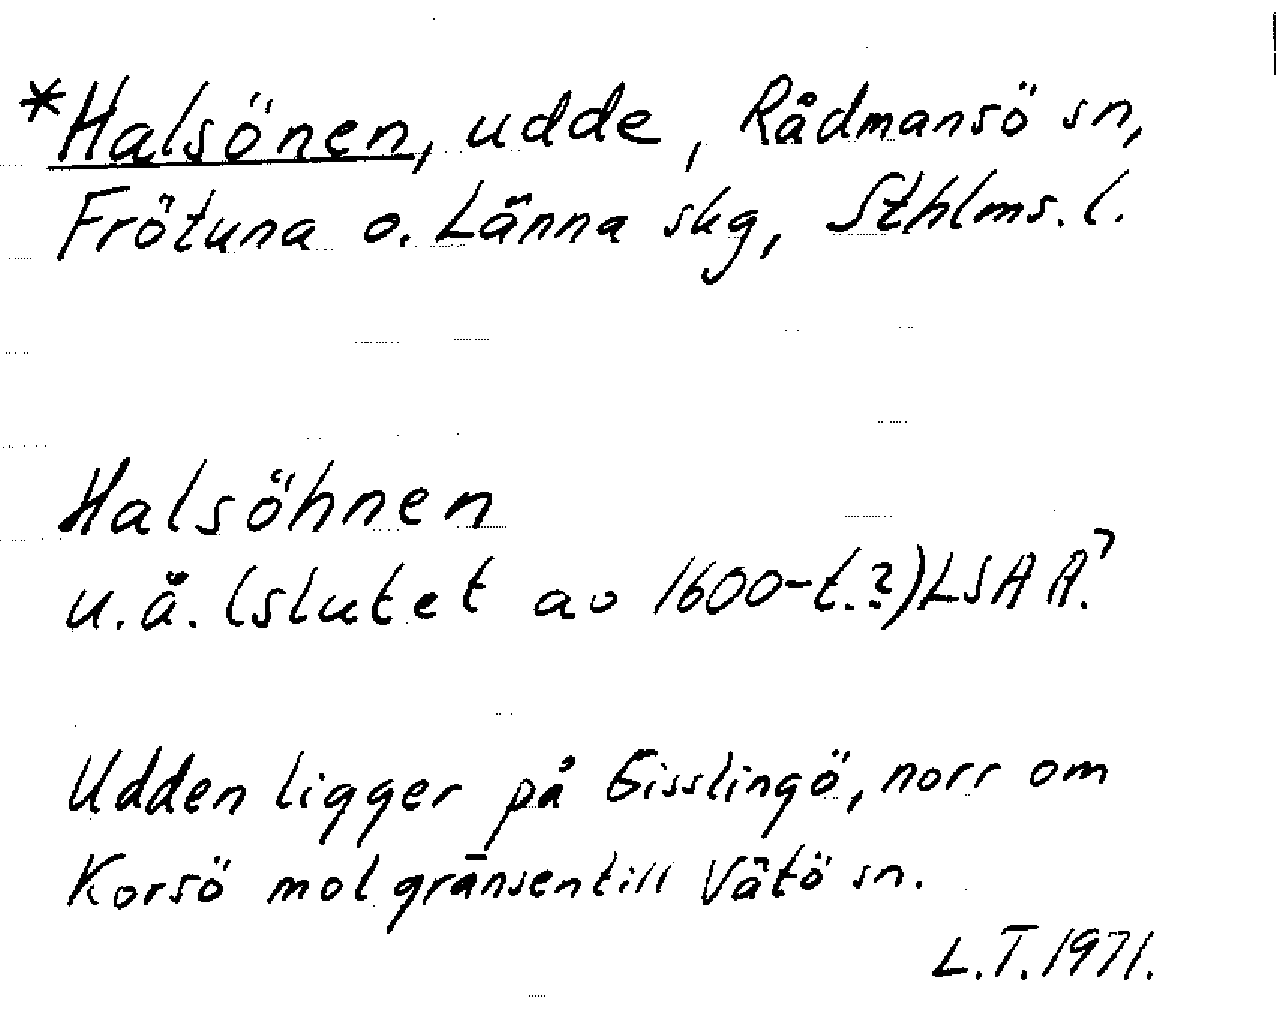 *Halsönen, udde, Rådmansö sn,
Frötuna o. Länna skg, Sthlms. l.
Halsöhnen
u.å. (slutet av 1600-t.?) LSA A?
Udden ligger på Gisslingö, norr om
Korsö mot gränsen till Vätö sn.
L.T. 1971.